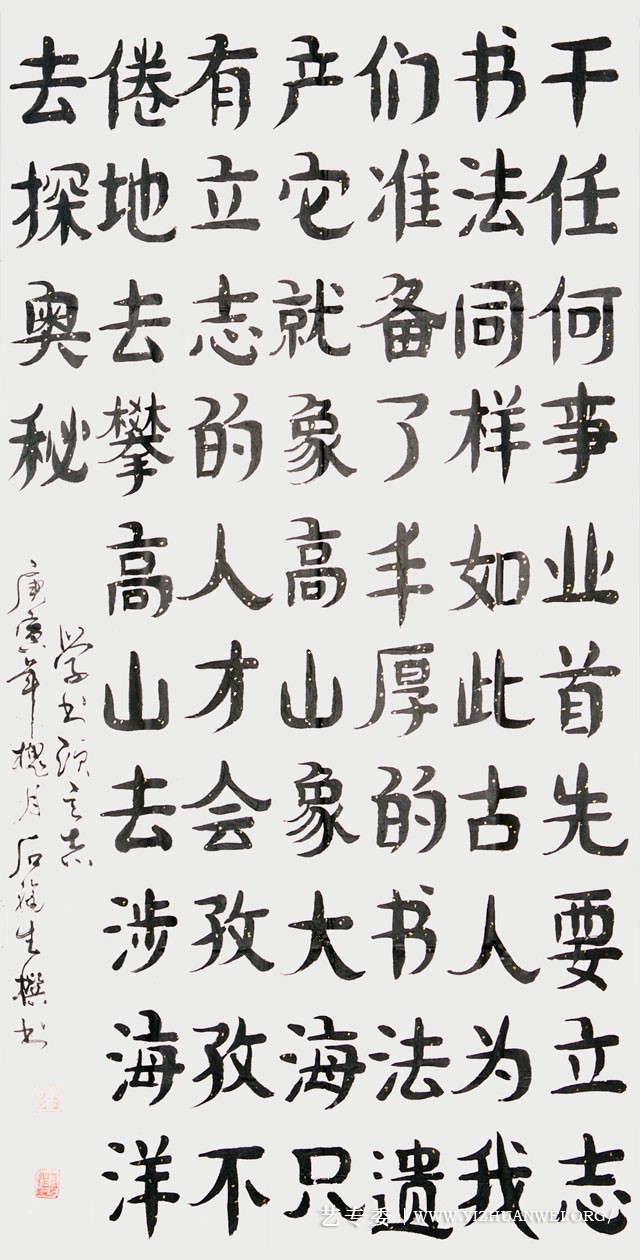 干任何事业首先要立志
书法同样如此古人为我
们准备了丰厚的书法遗
产它就象高山象大海只
有立志的人才会孜孜不
倦地去攀高山去涉海洋
去探奥秘
学书须立志
庚寅年槐月石龙生撰书
艺专委 | WWW.YIZHUANWEI.ORG/